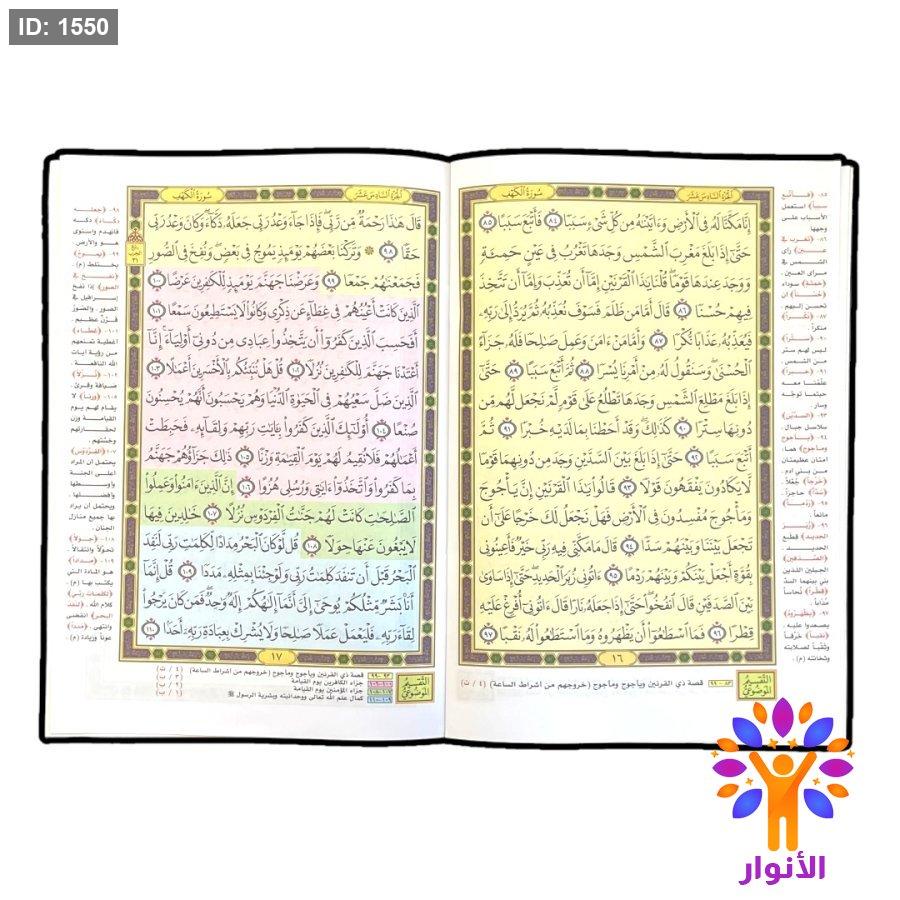 ID: 1550
الجزء السادس عشر
سورة الكهف
إِنَّا مَكَّنَّا لَهُ فِي الْأَرْضِ وَآتَيْنَاهُ مِنْ كُلِّ شَيْءٍ سَبَبًا ٨٤ فَأَتْبَعَ سَبَبًا ٨٥
حَتَّى إِذَا بَلَغَ مَغْرِبَ الشَّمْسِ وَجَدَهَا تَغْرُبُ فِي عَيْنٍ حَمِئَةٍ
وَوَجَدَ عِنْدَهَا قَوْمًا قُلْنَا يَا ذَا الْقَرْنَيْنِ إِمَّا أَنْ تُعَذِّبَ وَإِمَّا أَنْ تَتَّخِذَ
فِيهِمْ حُسْنًا ٨٦ قَالَ أَمَّا مَنْ ظَلَمَ فَسَوْفَ نُعَذِّبُهُ ثُمَّ يُرَدُّ إِلَى رَبِّهِ
فَيُعَذِّبُهُ عَذَابًا نُكْرًا ٨٧ وَأَمَّا مَنْ آمَنَ وَعَمِلَ صَالِحًا فَلَهُ جَزَاءً
الْحُسْنَى وَسَنَقُولُ لَهُ مِنْ أَمْرِنَا يُسْرًا ٨٨ ثُمَّ أَتْبَعَ سَبَبًا ٨٩ حَتَّى
إِذَا بَلَغَ مَطْلِعَ الشَّمْسِ وَجَدَهَا تَطْلُعُ عَلَى قَوْمٍ لَمْ نَجْعَلْ لَهُمْ مِنْ
دُونِهَا سِتْرًا ٩٠ كَذَلِكَ وَقَدْ أَحَطْنَا بِمَا لَدَيْهِ خُبْرًا ٩١ ثُمَّ
أَتْبَعَ سَبَبًا ٩٢ حَتَّى إِذَا بَلَغَ بَيْنَ السَّدَّيْنِ وَجَدَ مِنْ دُونِهِمَا قَوْمًا
لَا يَكَادُونَ يَفْقَهُونَ قَوْلًا ٩٣ قَالُوا يَا ذَا الْقَرْنَيْنِ إِنَّ يَأْجُوجَ
وَمَأْجُوجَ مُفْسِدُونَ فِي الْأَرْضِ فَهَلْ نَجْعَلُ لَكَ خَرْجًا عَلَى أَنْ
تَجْعَلَ بَيْنَنَا وَبَيْنَهُمْ سَدًّا ٩٤ قَالَ مَا مَكَّنِّي فِيهِ رَبِّي خَيْرٌ فَأَعِينُونِي
بِقُوَّةٍ أَجْعَلْ بَيْنَكُمْ وَبَيْنَهُمْ رَدْمًا ٩٥ آتُونِي زُبَرَ الْحَدِيدِ حَتَّى إِذَا سَاوَى
بَيْنَ الصَّدَفَيْنِ قَالَ انْفُخُوا حَتَّى إِذَا جَعَلَهُ نَارًا قَالَ آتُونِي أُفْرِغْ عَلَيْهِ
قِطْرًا ٩٦ فَمَا اسْطَاعُوا أَنْ يَظْهَرُوهُ وَمَا اسْتَطَاعُوا لَهُ نَقْبًا ٩٧
١٦
التقسيم الموضوعي
٨٣ - ٩٩ قصة ذي القرنين ويأجوج ومأجوج (خروجهم من أشراط الساعة) (٤ / ت)
الجزء السادس عشر
سورة الكهف
قَالَ هَذَا رَحْمَةٌ مِنْ رَبِّي فَإِذَا جَاءَ وَعْدُ رَبِّي جَعَلَهُ دَكَّاءَ وَكَانَ وَعْدُ رَبِّي
حَقًّا ٩٨ وَتَرَكْنَا بَعْضَهُمْ يَوْمَئِذٍ يَمُوجُ فِي بَعْضٍ وَنُفِخَ فِي الصُّورِ
فَجَمَعْنَاهُمْ جَمْعًا ٩٩ وَعَرَضْنَا جَهَنَّمَ يَوْمَئِذٍ لِلْكَافِرِينَ عَرْضًا ١٠٠
الَّذِينَ كَانَتْ أَعْيُنُهُمْ فِي غِطَاءٍ عَنْ ذِكْرِي وَكَانُوا لَا يَسْتَطِيعُونَ سَمْعًا ١٠١
أَفَحَسِبَ الَّذِينَ كَفَرُوا أَنْ يَتَّخِذُوا عِبَادِي مِنْ دُونِي أَوْلِيَاءَ إِنَّا
أَعْتَدْنَا جَهَنَّمَ لِلْكَافِرِينَ نُزُلًا ١٠٢ قُلْ هَلْ نُنَبِّئُكُمْ بِالْأَخْسَرِينَ أَعْمَالًا ١٠٣
الَّذِينَ ضَلَّ سَعْيُهُمْ فِي الْحَيَاةِ الدُّنْيَا وَهُمْ يَحْسَبُونَ أَنَّهُمْ يُحْسِنُونَ
صُنْعًا ١٠٤ أُولَئِكَ الَّذِينَ كَفَرُوا بِآيَاتِ رَبِّهِمْ وَلِقَائِهِ فَحَبِطَتْ
أَعْمَالُهُمْ فَلَا نُقِيمُ لَهُمْ يَوْمَ الْقِيَامَةِ وَزْنًا ١٠٥ ذَلِكَ جَزَاؤُهُمْ جَهَنَّمُ
بِمَا كَفَرُوا وَاتَّخَذُوا آيَاتِي وَرُسُلِي هُزُوًا ١٠٦ إِنَّ الَّذِينَ آمَنُوا وَعَمِلُوا
الصَّالِحَاتِ كَانَتْ لَهُمْ جَنَّاتُ الْفِرْدَوْسِ نُزُلًا ١٠٧ خَالِدِينَ فِيهَا
لَا يَبْغُونَ عَنْهَا حِوَلًا ١٠٨ قُلْ لَوْ كَانَ الْبَحْرُ مِدَادًا لِكَلِمَاتِ رَبِّي لَنَفِدَ
الْبَحْرُ قَبْلَ أَنْ تَنْفَدَ كَلِمَاتُ رَبِّي وَلَوْ جِئْنَا بِمِثْلِهِ مَدَدًا ١٠٩ قُلْ إِنَّمَا
أَنَا بَشَرٌ مِثْلُكُمْ يُوحَى إِلَيَّ أَنَّمَا إِلَهُكُمْ إِلَهٌ وَاحِدٌ فَمَنْ كَانَ يَرْجُو
لِقَاءَ رَبِّهِ فَلْيَعْمَلْ عَمَلًا صَالِحًا وَلَا يُشْرِكْ بِعِبَادَةِ رَبِّهِ أَحَدًا ١١٠
١٧
التقسيم الموضوعي
٩٢ - ٩٩ قصة ذي القرنين ويأجوج ومأجوج (خروجهم من أشراط الساعة) (٤ / ت)
جزاء الكافرين يوم القيامة
جزاء المؤمنين يوم القيامة
كمال علم الله تعالى ووحدانيته وبشرية الرسول ﷺ
الأنوار